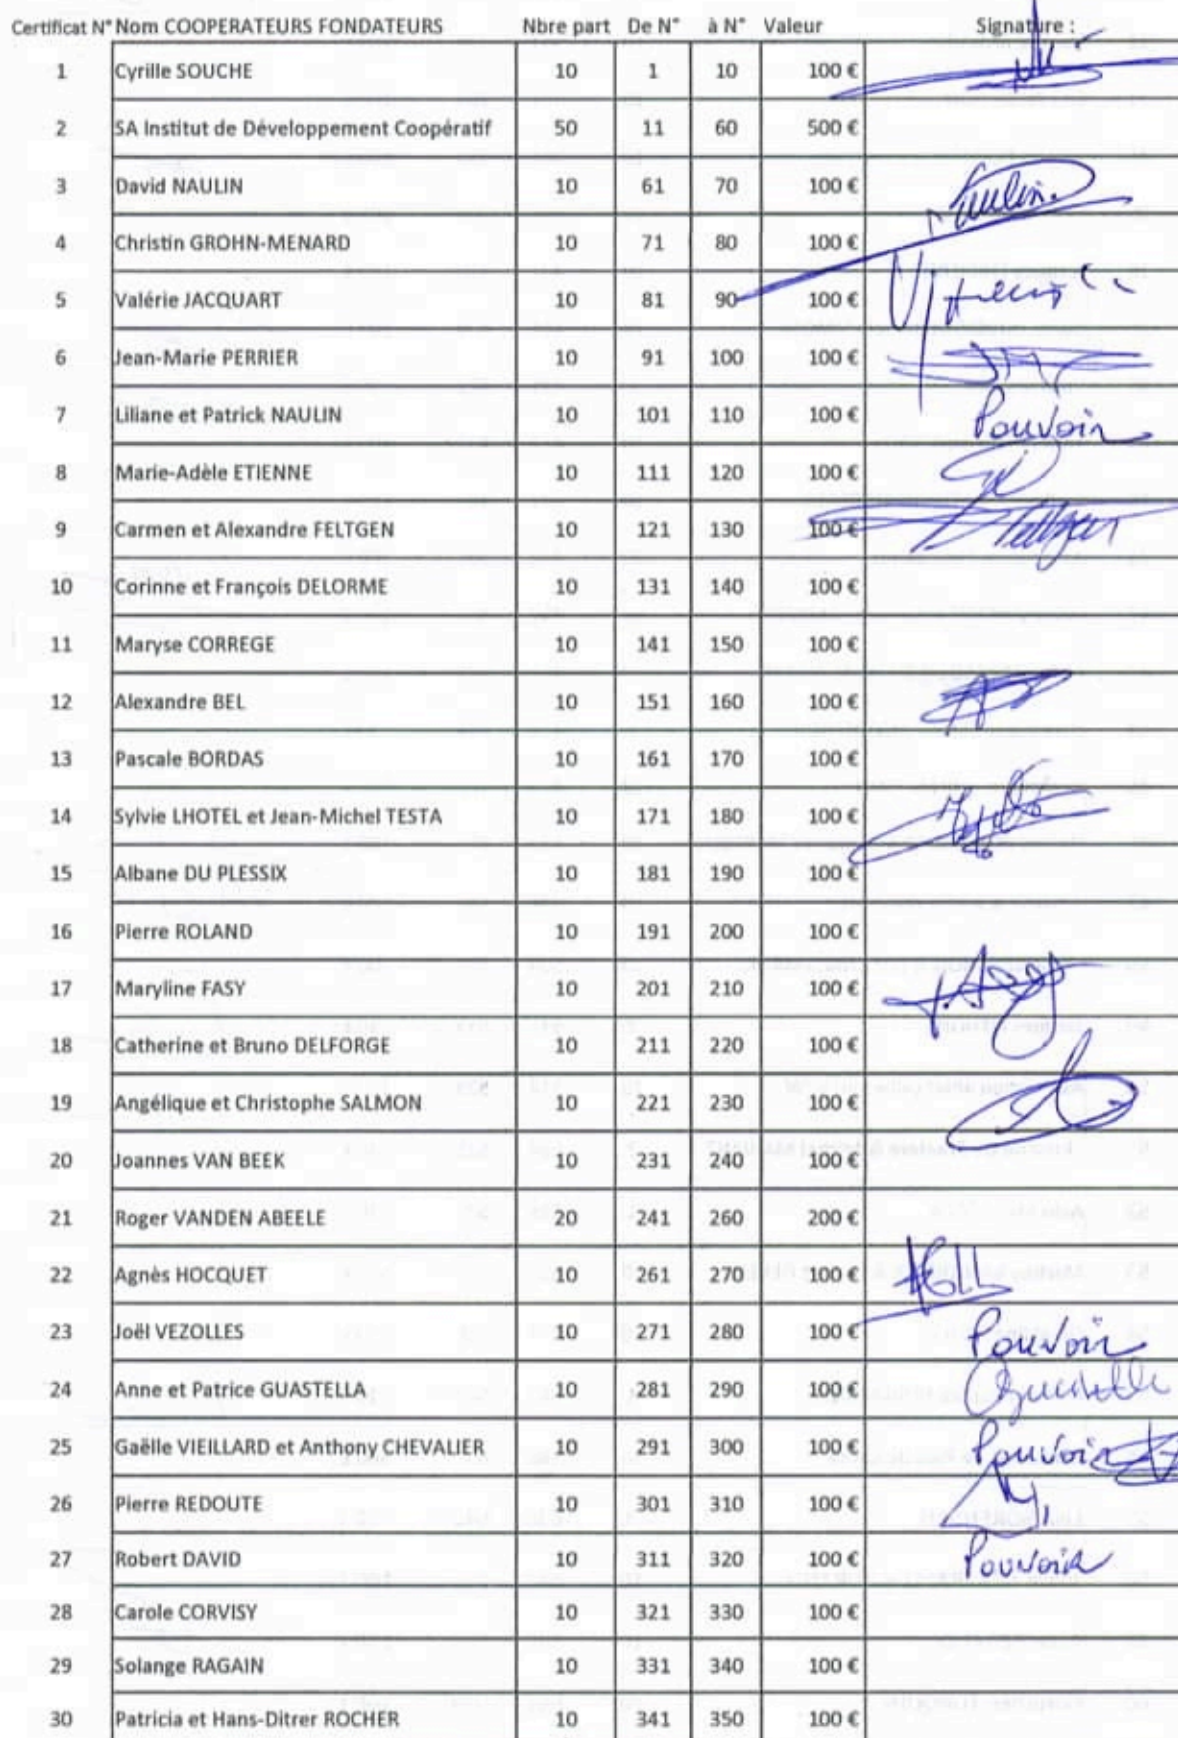 Certificat N° Nom COOPERATEURS FONDATEURS Nbre part De N° à N° Valeur Signature :
1 Cyrille SOUCHE 10 1 10 100 €
2 SA Institut de Développement Coopératif 50 11 60 500 €
3 David NAULIN 10 61 70 100 € Naulin
4 Christin GROHN-MENARD 10 71 80 100 €
5 Valérie JACQUART 10 81 90 100 €
6 Jean-Marie PERRIER 10 91 100 100 €
7 Liliane et Patrick NAULIN 10 101 110 100 € Pouvoir
8 Marie-Adèle ETIENNE 10 111 120 100 €
9 Carmen et Alexandre FELTGEN 10 121 130 100 € Feltgen
10 Corinne et François DELORME 10 131 140 100 €
11 Maryse CORREGE 10 141 150 100 €
12 Alexandre BEL 10 151 160 100 €
13 Pascale BORDAS 10 161 170 100 €
14 Sylvie LHOTEL et Jean-Michel TESTA 10 171 180 100 €
15 Albane DU PLESSIX 10 181 190 100 €
16 Pierre ROLAND 10 191 200 100 €
17 Maryline FASY 10 201 210 100 €
18 Catherine et Bruno DELFORGE 10 211 220 100 €
19 Angélique et Christophe SALMON 10 221 230 100 €
20 Joannes VAN BEEK 10 231 240 100 €
21 Roger VANDEN ABEELE 20 241 260 200 €
22 Agnès HOCQUET 10 261 270 100 €
23 Joël VEZOLLES 10 271 280 100 € Pouvoir
24 Anne et Patrice GUASTELLA 10 281 290 100 € Guastella
25 Gaëlle VIEILLARD et Anthony CHEVALIER 10 291 300 100 € Pouvoir
26 Pierre REDOUTE 10 301 310 100 €
27 Robert DAVID 10 311 320 100 € Pouvoir
28 Carole CORVISY 10 321 330 100 €
29 Solange RAGAIN 10 331 340 100 €
30 Patricia et Hans-Ditrer ROCHER 10 341 350 100 €